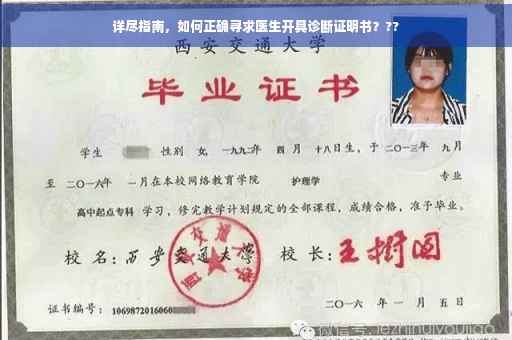 详尽指南，如何正确寻求医生开具诊断证明书？??
西安交通大学
毕业证书
学生 性别 女, 一九九二年 四月 十八日生, 于二〇一三年 九月
至 二〇一六年 一月在本校网络教育学院 护理学 专业
高中起点专科 学习, 修完教学计划规定的全部课程, 成绩合格, 准予毕业。
校名: 西安交通大学 校长: 王树国
西安交通大学
证书编号: 1069872016060
二〇一六年 一月 五日
微信号: jiezhihuiyoujiao